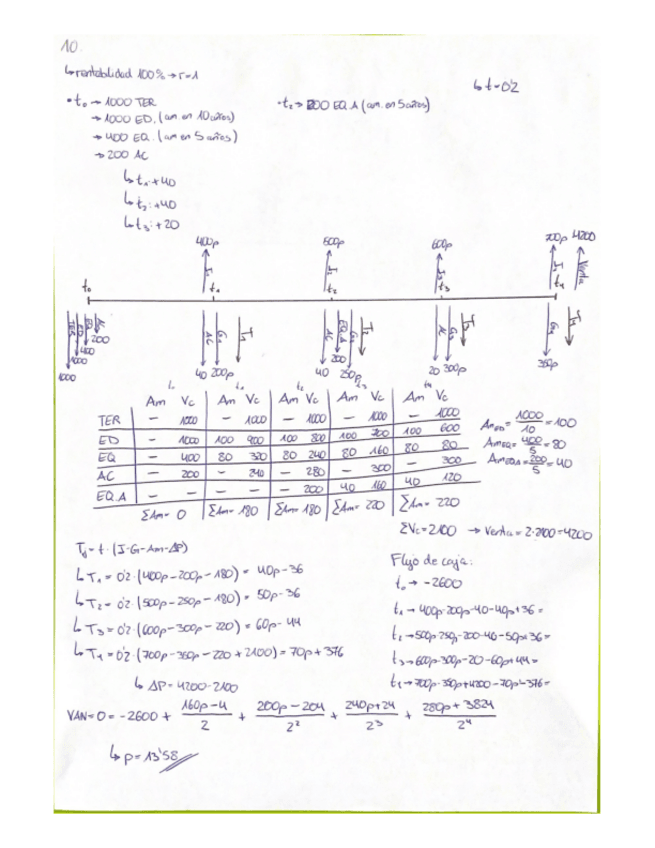 10.
↳ rentabilidad 100% → r=1
↳ t=0'2
• t₀ → 1000 TER
→ 1000 ED. (am. en 10 años)
→ 400 EQ. (am en 5 años)
→ 200 AC
↳ t₁: +40
↳ t₂: +40
↳ t₃: +20
• t₂ → 200 EQ.A (am. en 5 años)
400p 500p 600p 700p 4200
t₀ I₁ t₁ I₂ t₂ I₃ t₃ I₄ t₄ Venta
TER ED EQ AC AC G₁ T₁ AC EQ.A G₂ T₂ AC G₃ T₃ G₄ T₄
1000 1000 400 200 40 200p 40 200 250p 20 300p 350p
t₀ t₁ t₂ t₃ t₄
Am Vc Am Vc Am Vc Am Vc Am Vc
TER — 1000 — 1000 — 1000 — 1000 — 1000
ED — 1000 100 900 100 800 100 700 100 600
EQ — 400 80 320 80 240 80 160 80 80
AC — 200 — 240 — 280 — 300 — 300
EQ.A — — — — — 200 40 160 40 120
ΣAm= 0 ΣAm= 180 ΣAm= 180 ΣAm= 220 ΣAm= 220
Am ED = 1000/10 = 100
Am EQ = 400/5 = 80
Am EQA = 200/5 = 40
ΣVc = 2100 → Venta = 2·2100 = 4200
Tⱼ = t · (I-G-Am-ΔP)
↳ T₁ = 0'2 · (400p - 200p - 180) = 40p - 36
↳ T₂ = 0'2 · (500p - 250p - 180) = 50p - 36
↳ T₃ = 0'2 · (600p - 300p - 220) = 60p - 44
↳ T₄ = 0'2 · (700p - 350p - 220 + 2100) = 70p + 376
↳ ΔP = 4200 - 2100
Flujo de caja:
t₀ → -2600
t₁ → 400p-200p-40-40p+36 =
t₂ → 500p-250p-200-40-50p+36 =
t₃ → 600p-300p-20-60p+44 =
t₄ → 700p-350p+4200-70p-376 =
VAN = 0 = -2600 + (160p - 4)/2 + (200p - 204)/2² + (240p + 24)/2³ + (280p + 3824)/2⁴
↳ p = 13'58